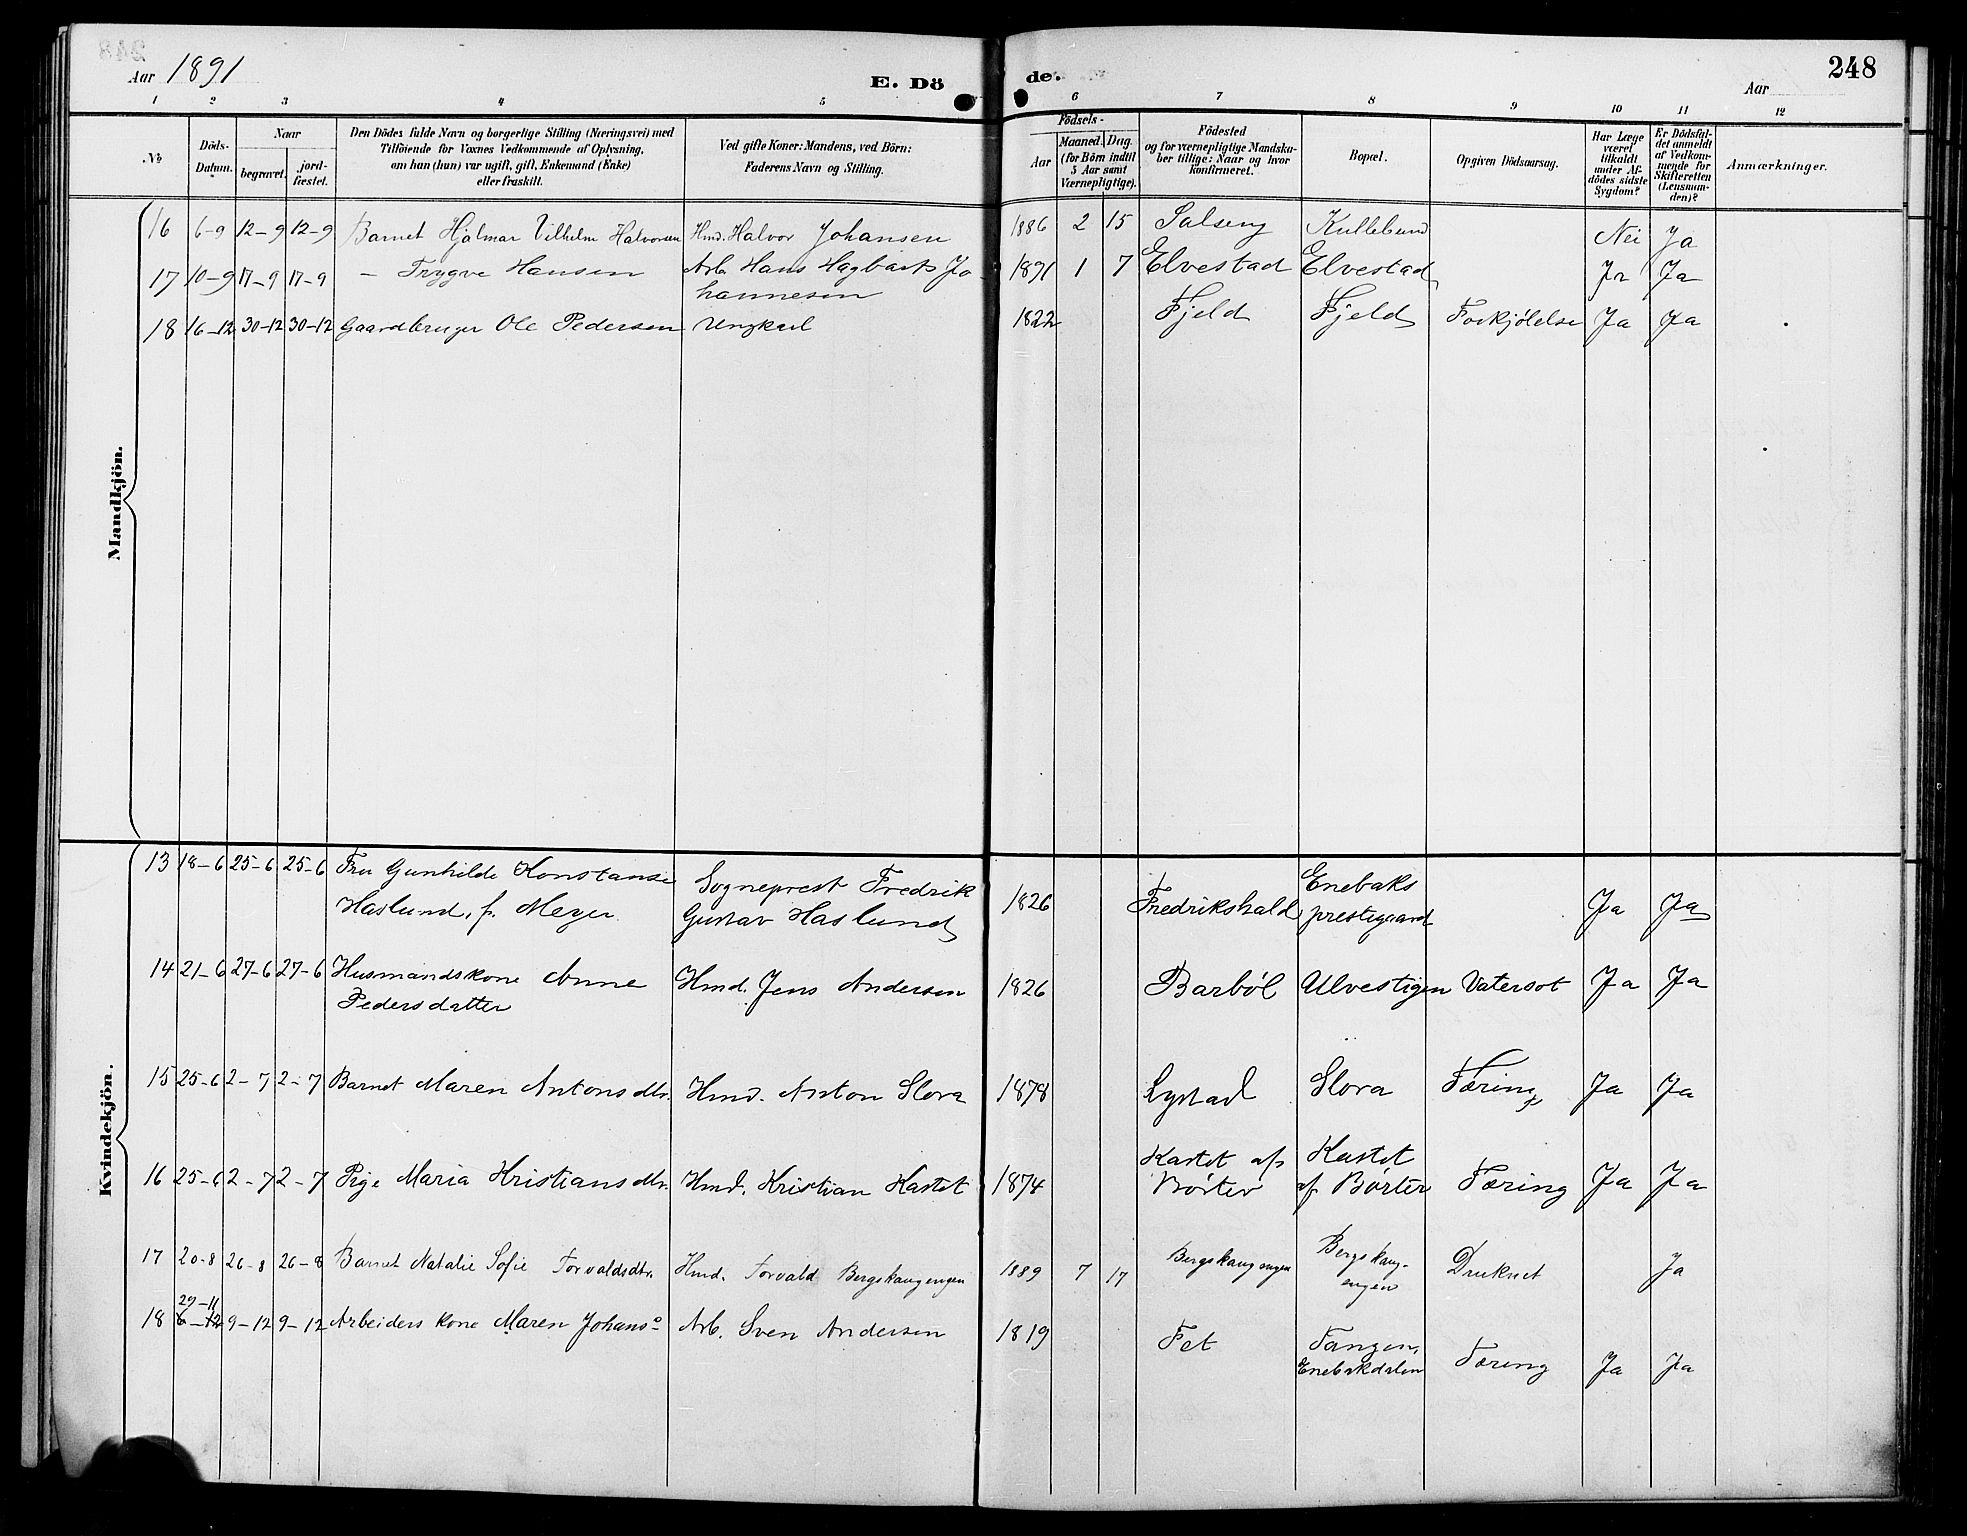 Aar 1891
E. Dö
de.
Aar
248
1 2 3 4 5 6 7 8 9 10 11 12
No
Döds-
Datum.
Naar
begravet.
jord-
fæstet.
Den Dödes fulde Navn og borgerlige Stilling (Næringsvei) med
Tilföiende for Voxnes Vedkommende af Oplysning,
om han (hun) var ugift, gift, Enkemand (Enke)
eller fraskilt.
Ved gifte Koner: Mandens, ved Börn:
Faderens Navn og Stilling.
Födsels-
Aar
Maaned. Dag.
(for Börn indtil
5 Aar samt
Værnepligtige).
Födested
og for værnepligtige Mandska-
ber tillige: Naar og hvor
konfirmeret.
Bopæl.
Opgiven Dödsaarsag.
Har Læge
været
tilkaldt
under Af-
dödes sidste
Sygdom?
Er Dödsfal-
det anmeldt
af Vedkom-
mende for
Skifteretten
(Lensman-
den)?
Anmærkninger.
Mandkjön.
16 6-9 12-9 12-9 Barnet Hjalmar Vilhelm Halvorsen Hmd. Halvor Johansen 1886 2 15 Kullebund Nei Ja
17 10-9 17-9 17-9 - Trygve Hansen Arb. Hans Hagbart Jo- 1891 1 7 Elvestad Elvestad Ja Ja
hannesen
18 16-12 30-12 30-12 Gaardbruger Ole Pedersen Ungkarl 1822 Fjeld Fjeld Forkjølelse Ja Ja
Kvindekjön.
13 18-6 25-6 25-6 Fru Gunhilde Konstanse Sogneprest Fredrik 1826 Fredrikshald Enebaks Ja Ja
Haslund, f. Meyer Gustav Haslund prestegaard
14 21-6 27-6 27-6 Husmandskone Anne Hmd. Jens Andersen 1826 Barbøl Ulvestigen Vatersot Ja Ja
Pedersdatter
15 25-6 2-7 2-7 Barnet Maren Antonsdtr. Hmd. Anton Slora 1878 Lystad Slora Tæring Ja Ja
16 25-6 2-7 2-7 Pige Maria Kristiansdtr. Hmd. Kristian Kastet 1874 Kastet af Kastet Tæring Ja Ja
Børter af Børter
17 20-8 26-8 26-8 Barnet Natalie Sofie Torvaldsdtr. Hmd. Torvald Bergskaugengen 1889 7 17 Bergskaugengen Bergskaug- Druknet Ja
engen
29-11
18 6-12 9-12 9-12 Arbeiderskone Maren Johans⁰ Arb. Sven Andersen 1819 Fet Tangen, Tæring Ja Ja
Enebakdalen